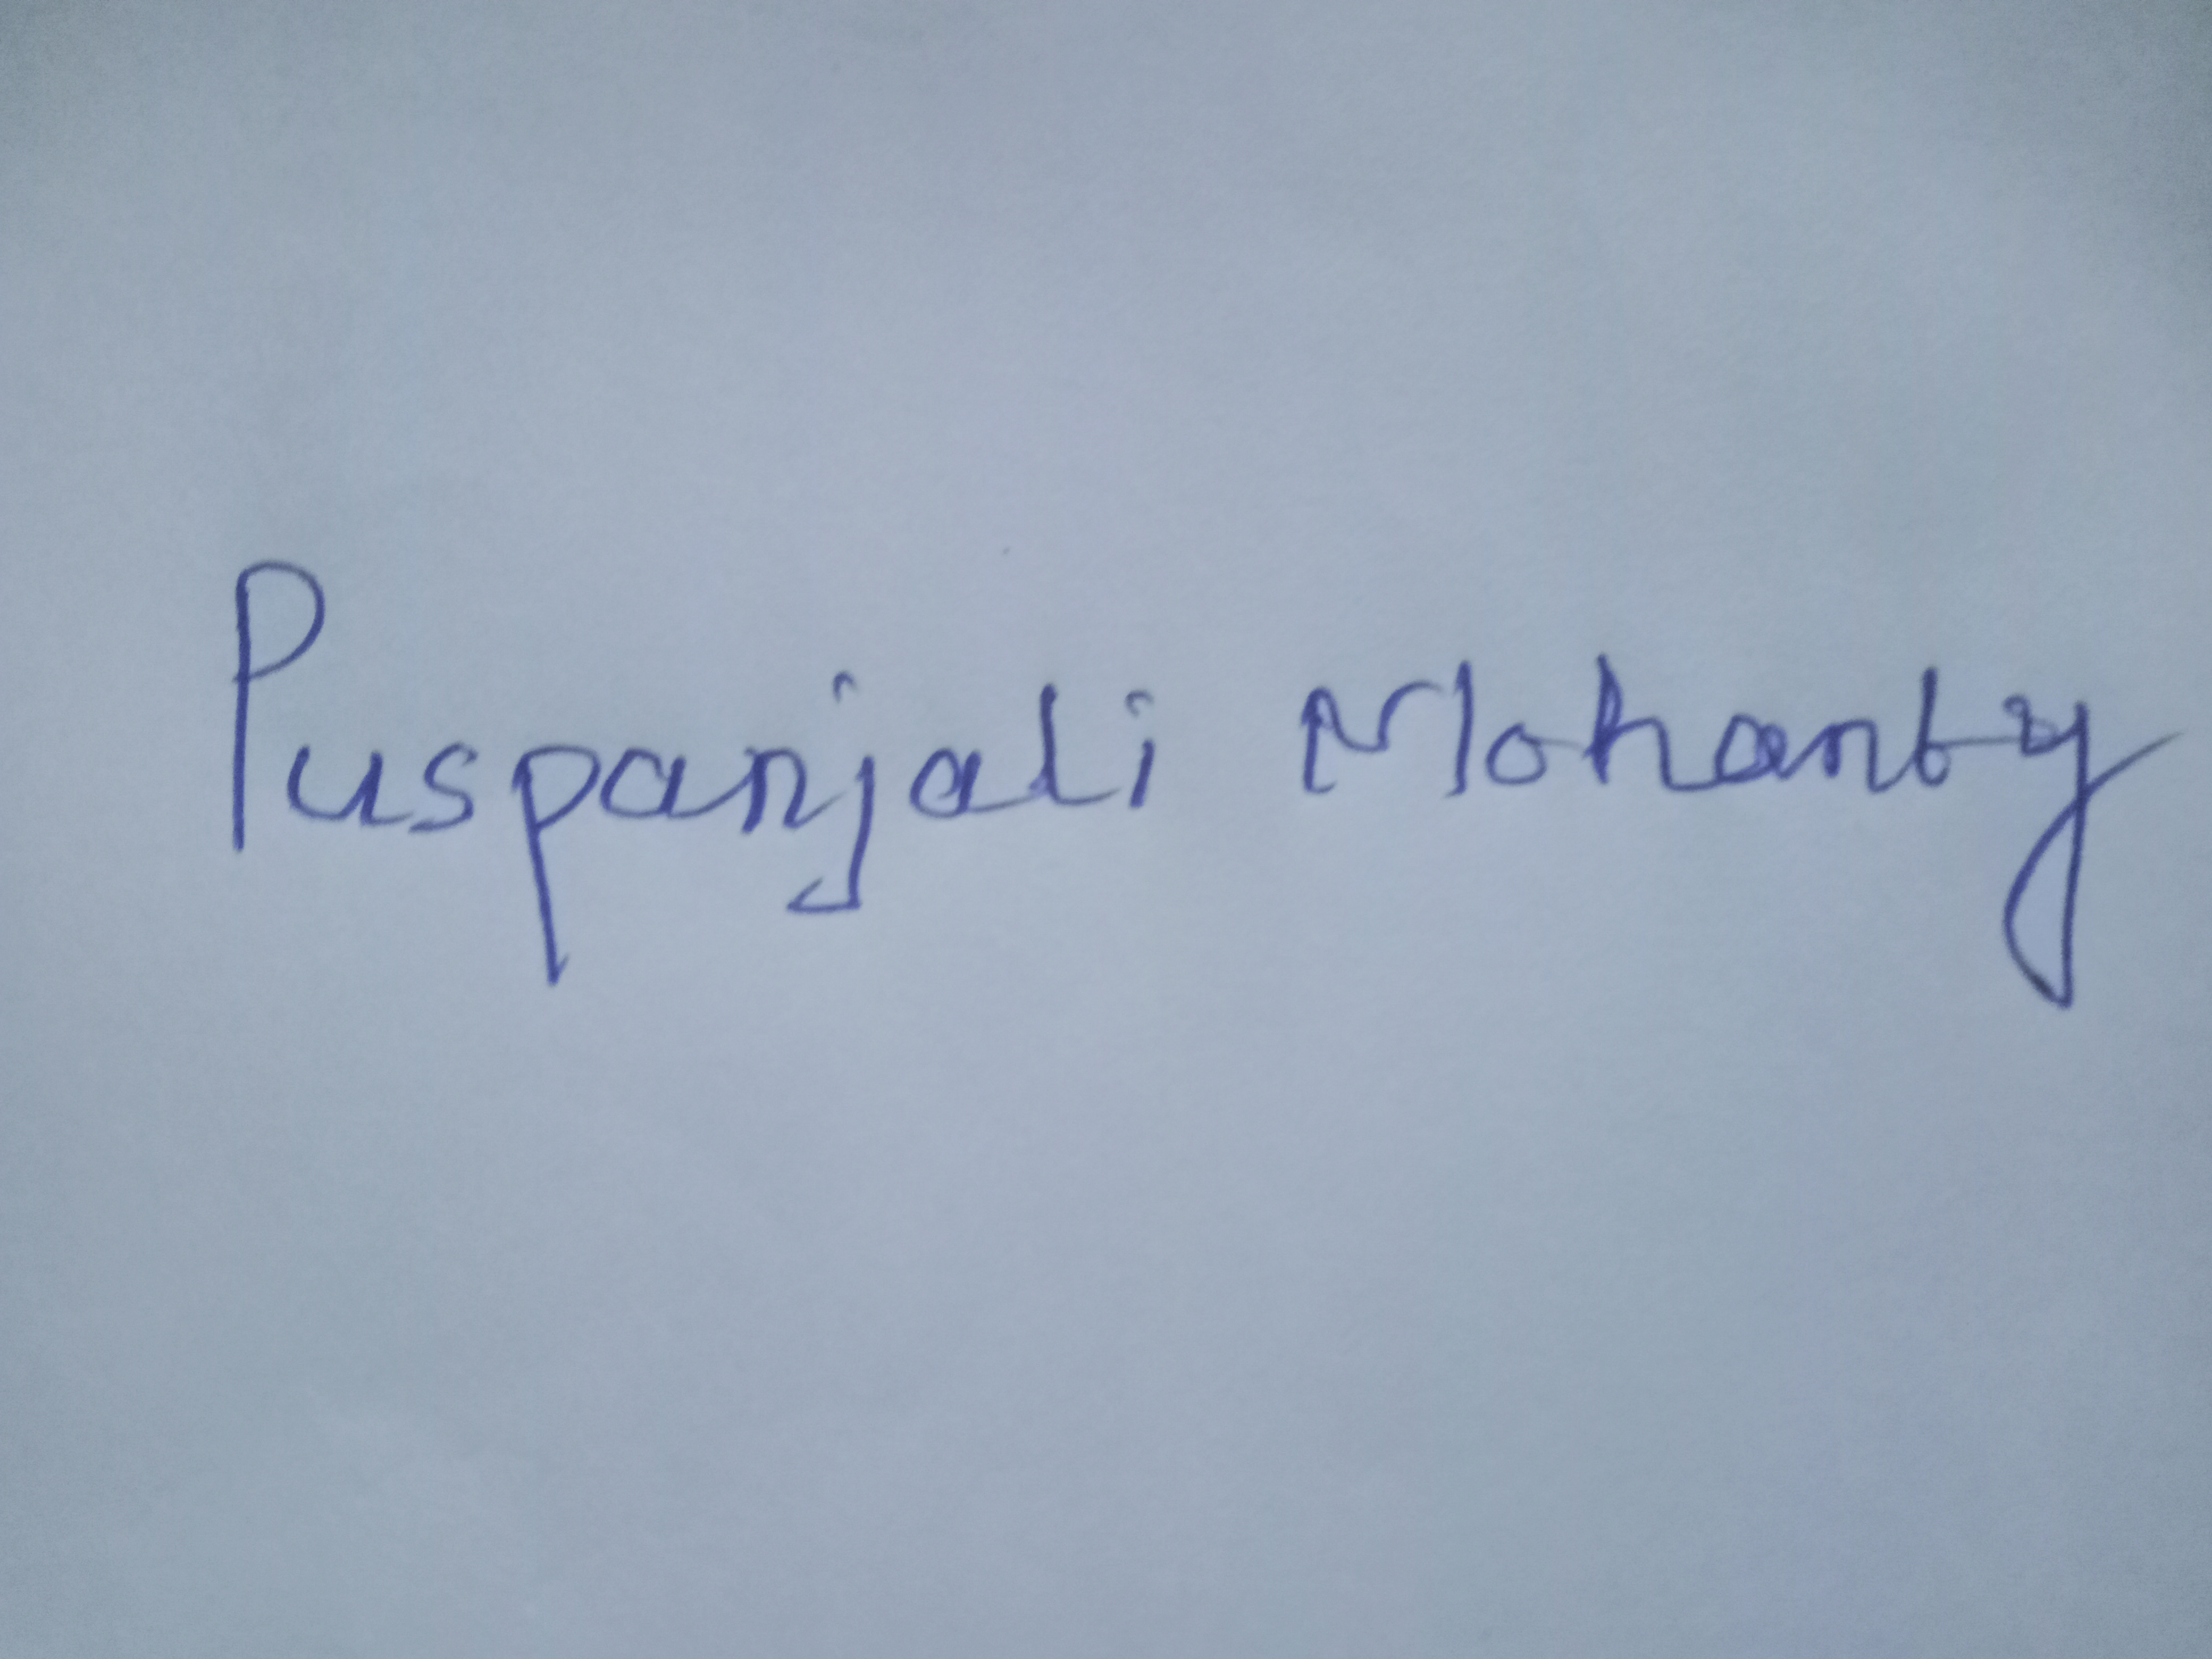 Puspanjali Mohanty